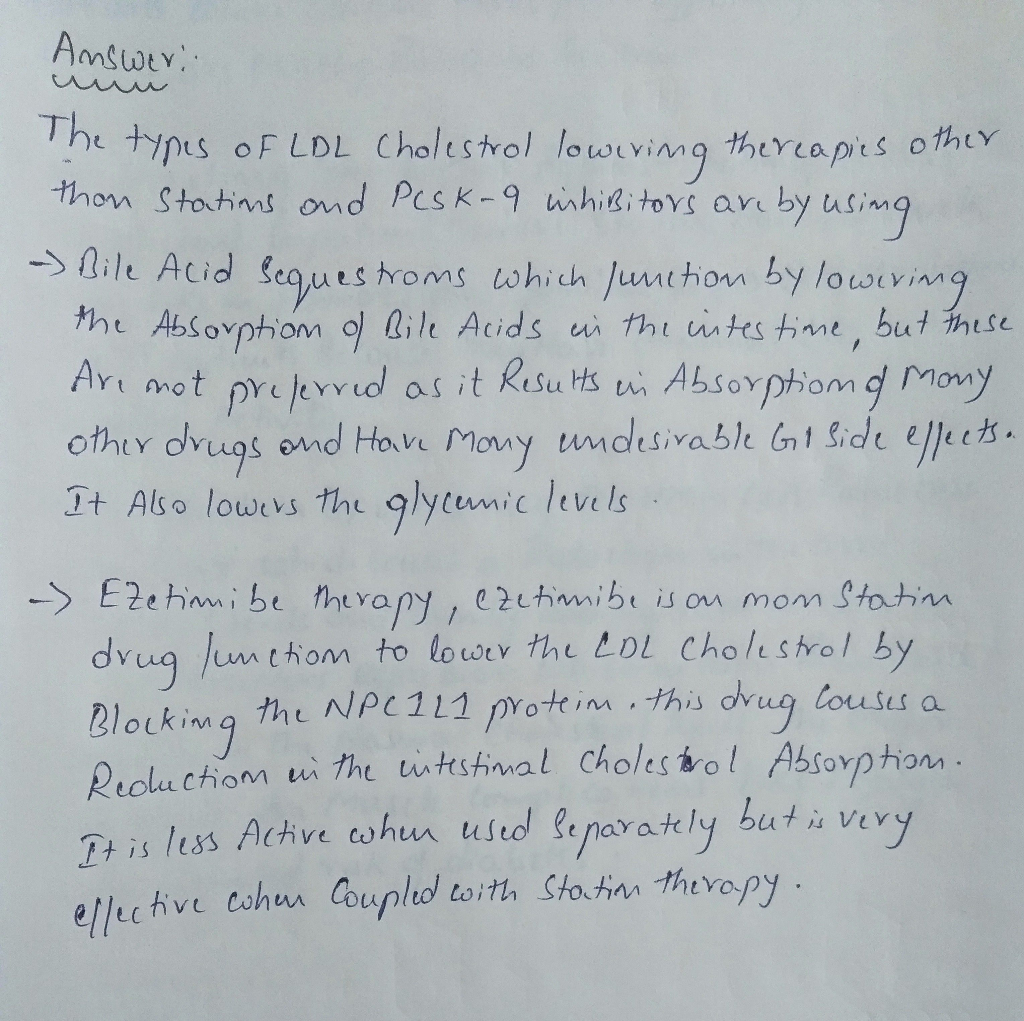 Answer:
The types of LDL Cholestrol lowering thereapies other
than Statins and PCSK-9 inhibitors are by using
→ Bile Acid Sequestrants which function by lowering
the Absorption of Bile Acids in the intestine, but these
Are not preferred as it Results in Absorption of Many
other drugs and Have Many undesirable GI Side effects.
It Also lowers the glycemic levels.
→ Ezetimibe therapy, ezetimibe is an non Statin
drug function to lower the LDL Cholestrol by
Blocking the NPC1L1 protein. this drug Causes a
Reduction in the intestinal Cholestrol Absorption.
It is less Active when used Separately but is very
effective when Coupled with Statin therapy.